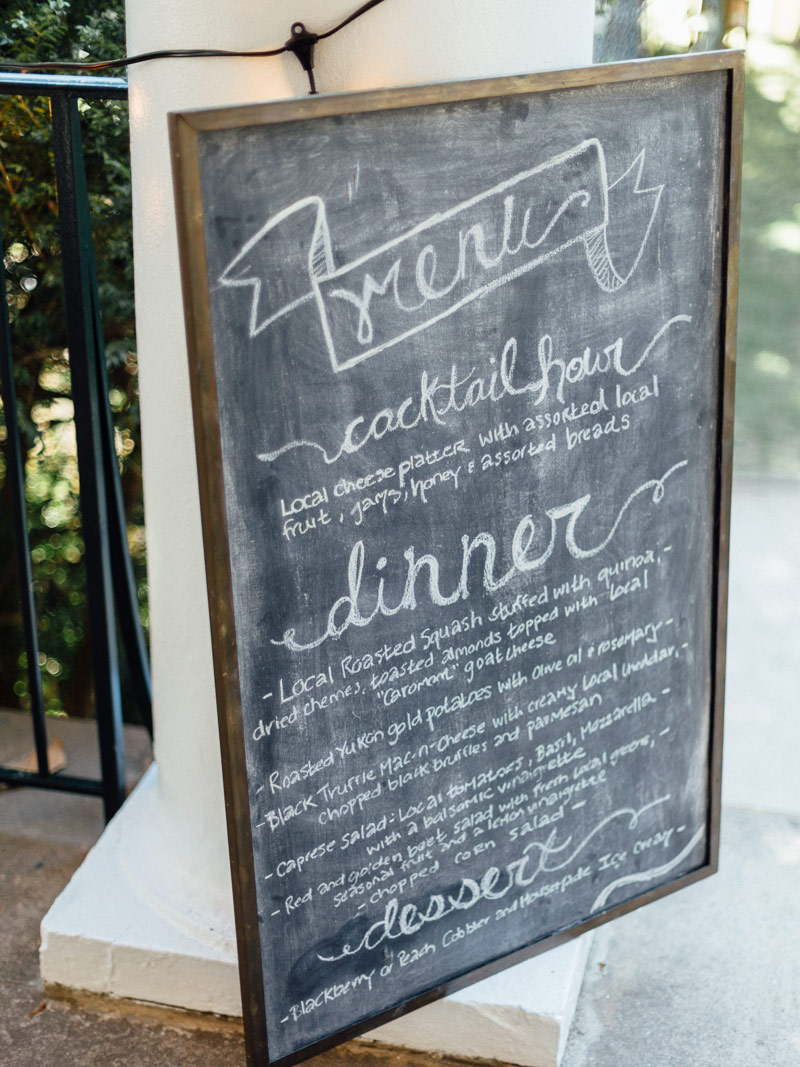 menu
cocktail hour
Local cheese platter with assorted local
fruit, jams, honey & assorted breads
dinner
- Local Roasted Squash stuffed with quinoa, -
dried cherries, toasted almonds topped with local
"Caromont" goat cheese
- Roasted Yukon gold potatoes with Olive oil & rosemary -
- Black Truffle Mac-n-Cheese with creamy local cheddar, -
chopped black truffles and parmesan
- Caprese Salad: Local tomatoes, Basil, Mozzarella -
with a balsamic vinaigrette
- Red and golden beet salad with fresh local greens, -
seasonal fruit and a lemon vinaigrette
- chopped corn salad -
dessert
- Blackberry or Peach Cobbler and Housemade Ice Cream -